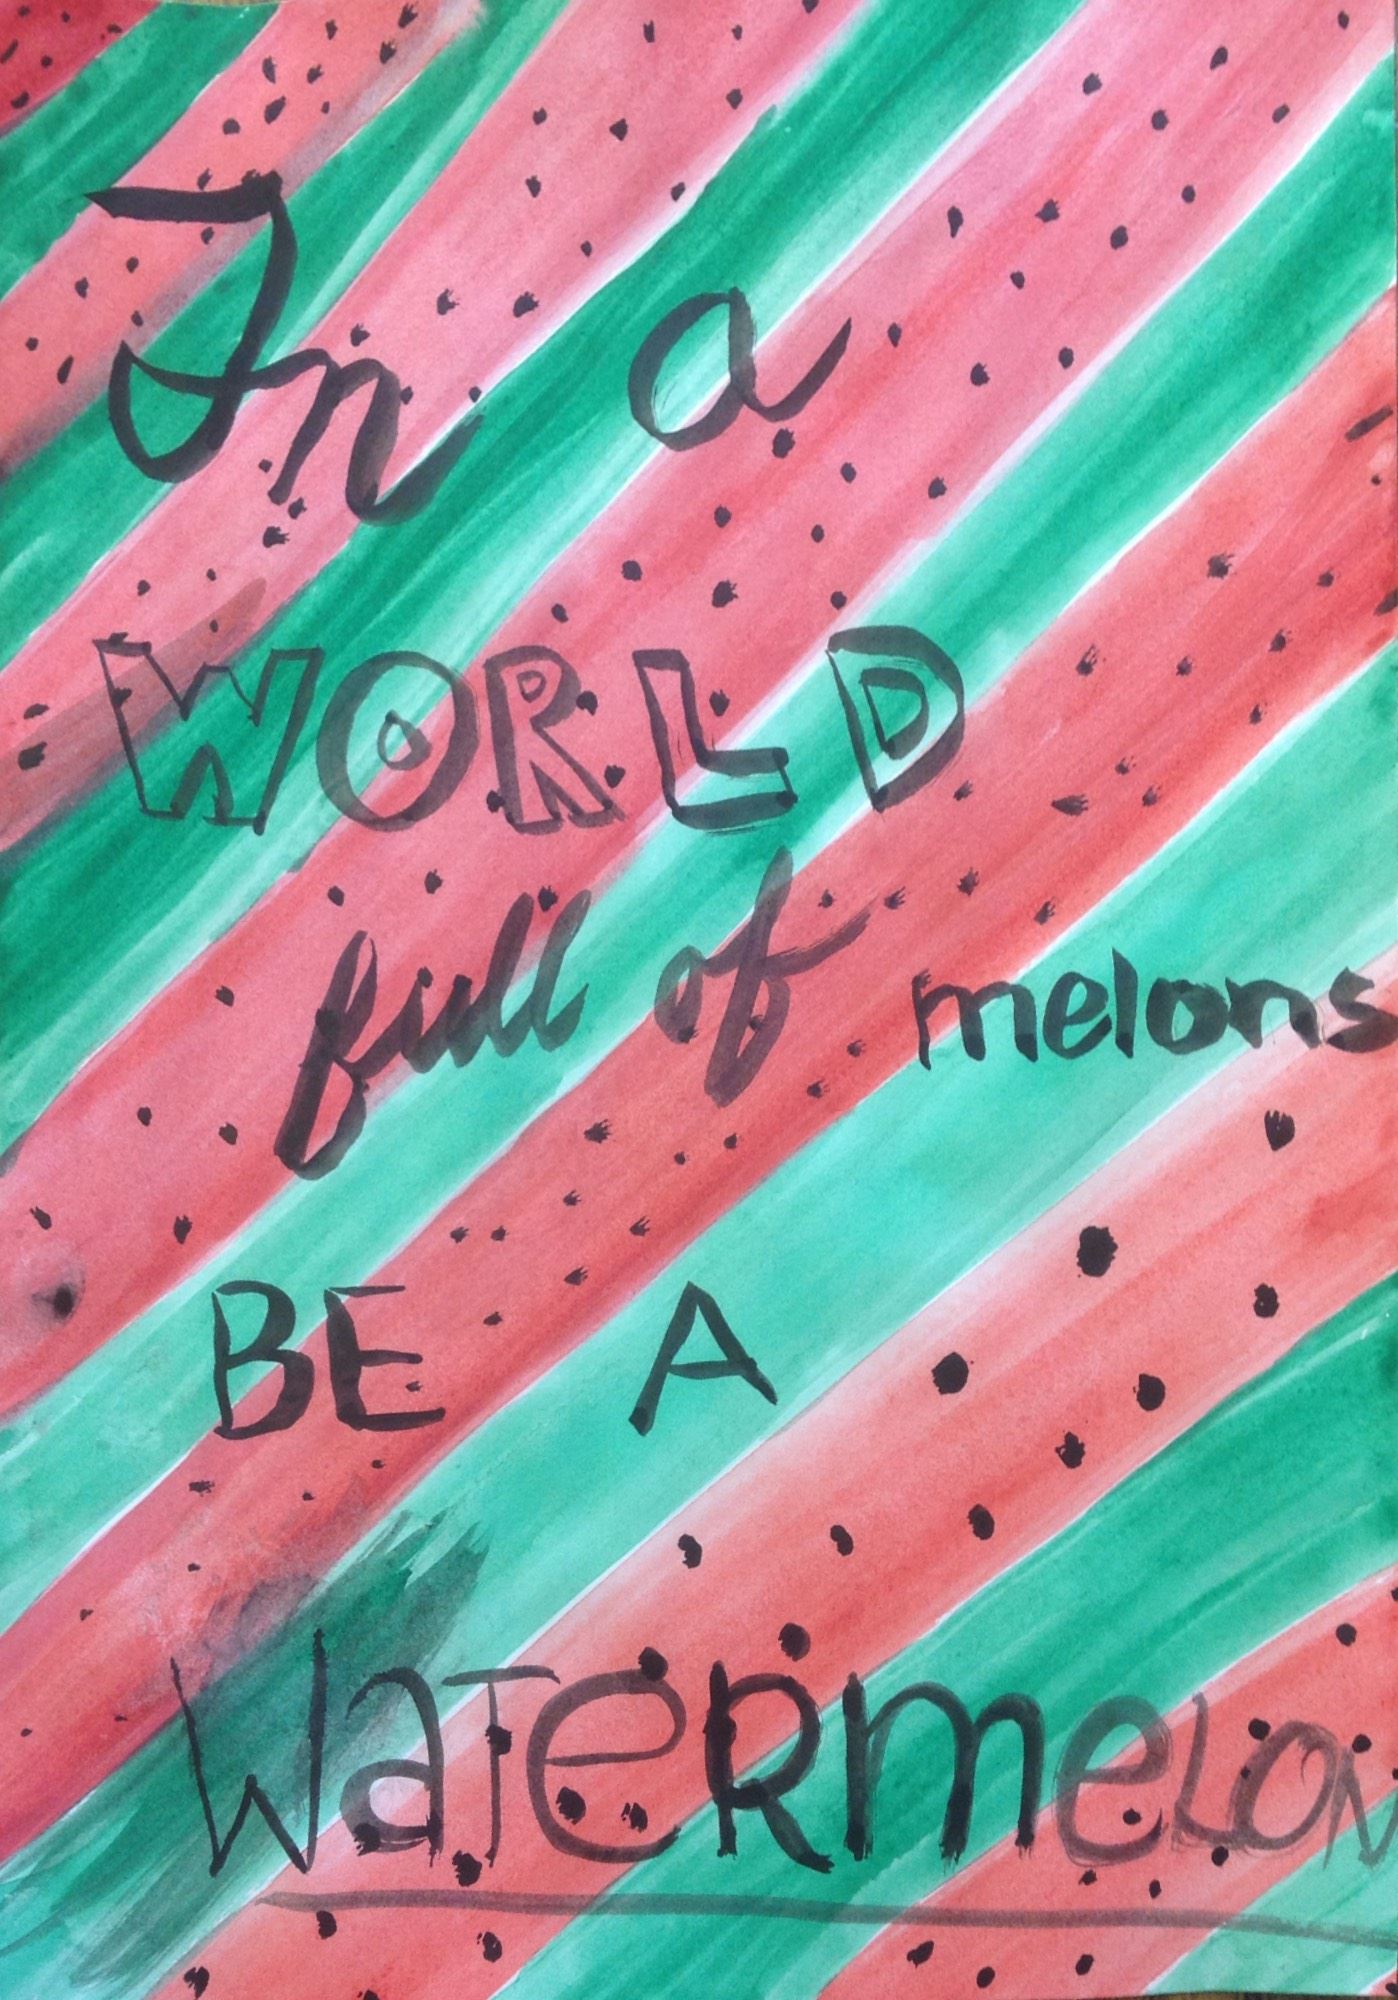 In a
WORLD
full of melons
BE A
WaTeRmeLON